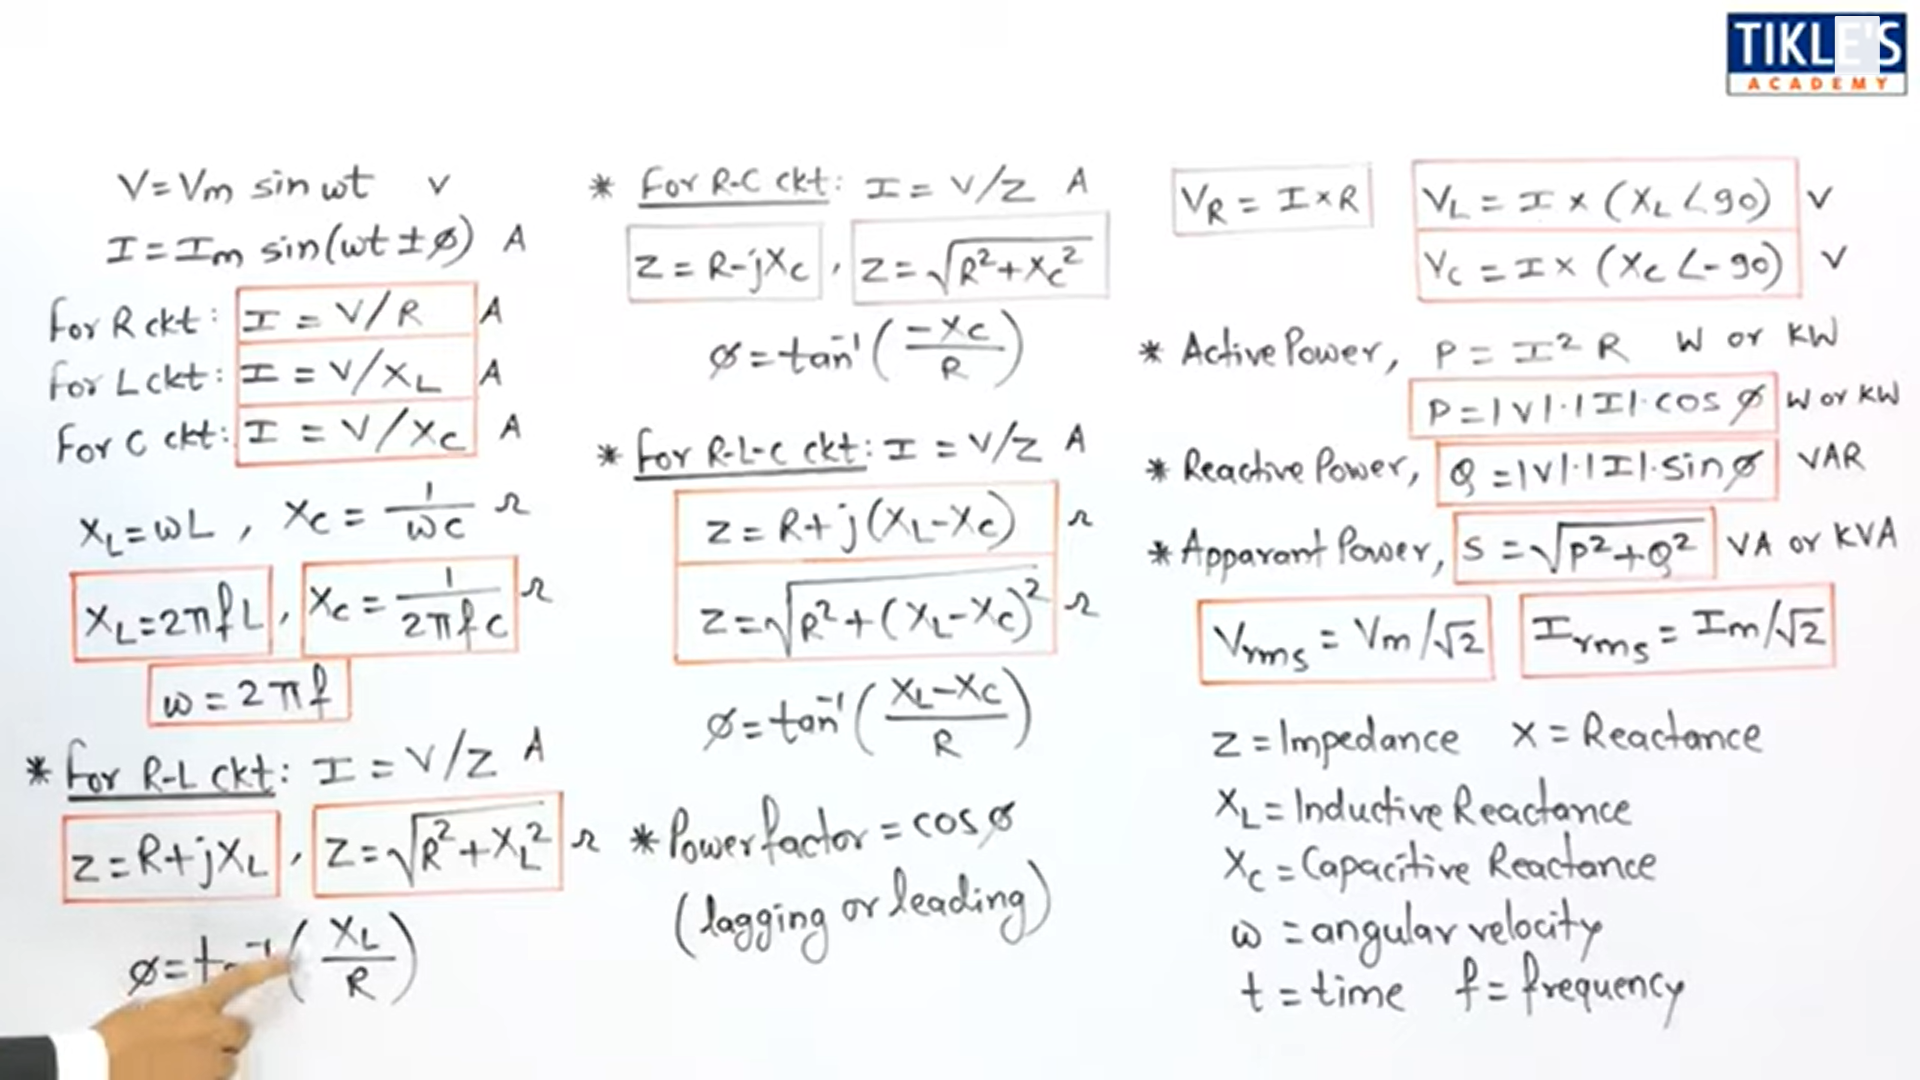 TIKLE'S
ACADEMY
V = Vm sin wt v
I = Im sin(wt ± ø) A
For R ckt: I = V/R A
For L ckt: I = V/XL A
For C ckt: I = V/Xc A
XL = wL , Xc = 1/wc Ω
XL = 2πfL , Xc = 1/2πfc Ω
w = 2πf
* For R-L ckt: I = V/Z A
Z = R+jXL , Z = √R²+XL² Ω
ø = (XL/R)
* For R-C ckt: I = V/Z A
Z = R-jXc , Z = √R²+Xc²
ø = tan⁻¹(-Xc/R)
* For R-L-C ckt: I = V/Z A
Z = R+j(XL-Xc) Ω
Z = √R²+(XL-Xc)² Ω
ø = tan⁻¹(XL-Xc/R)
* Power factor = cos ø
(lagging or leading)
VR = I×R VL = I × (XL ∠90) V
Vc = I × (Xc ∠-90) V
* Active Power, P = I² R W or KW
P = |V|·|I|·cos ø W or KW
* Reactive Power, Q = |V|·|I|·sin ø VAR
* Apparant Power, S = √P²+Q² VA or KVA
Vrms = Vm/√2 Irms = Im/√2
Z = Impedance X = Reactance
XL = Inductive Reactance
Xc = Capacitive Reactance
w = angular velocity
t = time f = frequency